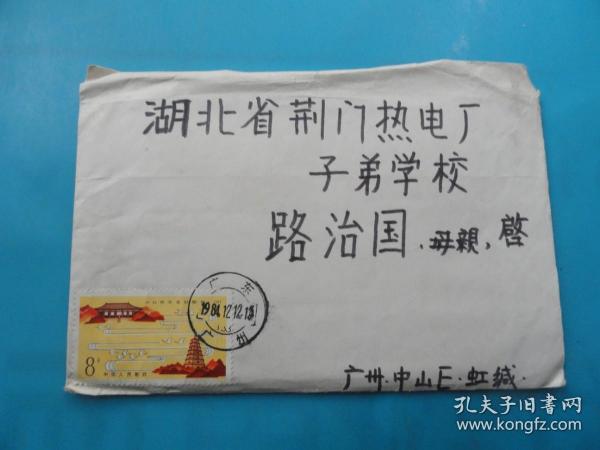 湖北省荆门热电厂
子弟学校
路治国.母親.啓
广东
1984.12.12.13
广州
8分
中国人民邮政
广州.中山E.虹缄.
孔夫子旧书网
www.kongfz.com